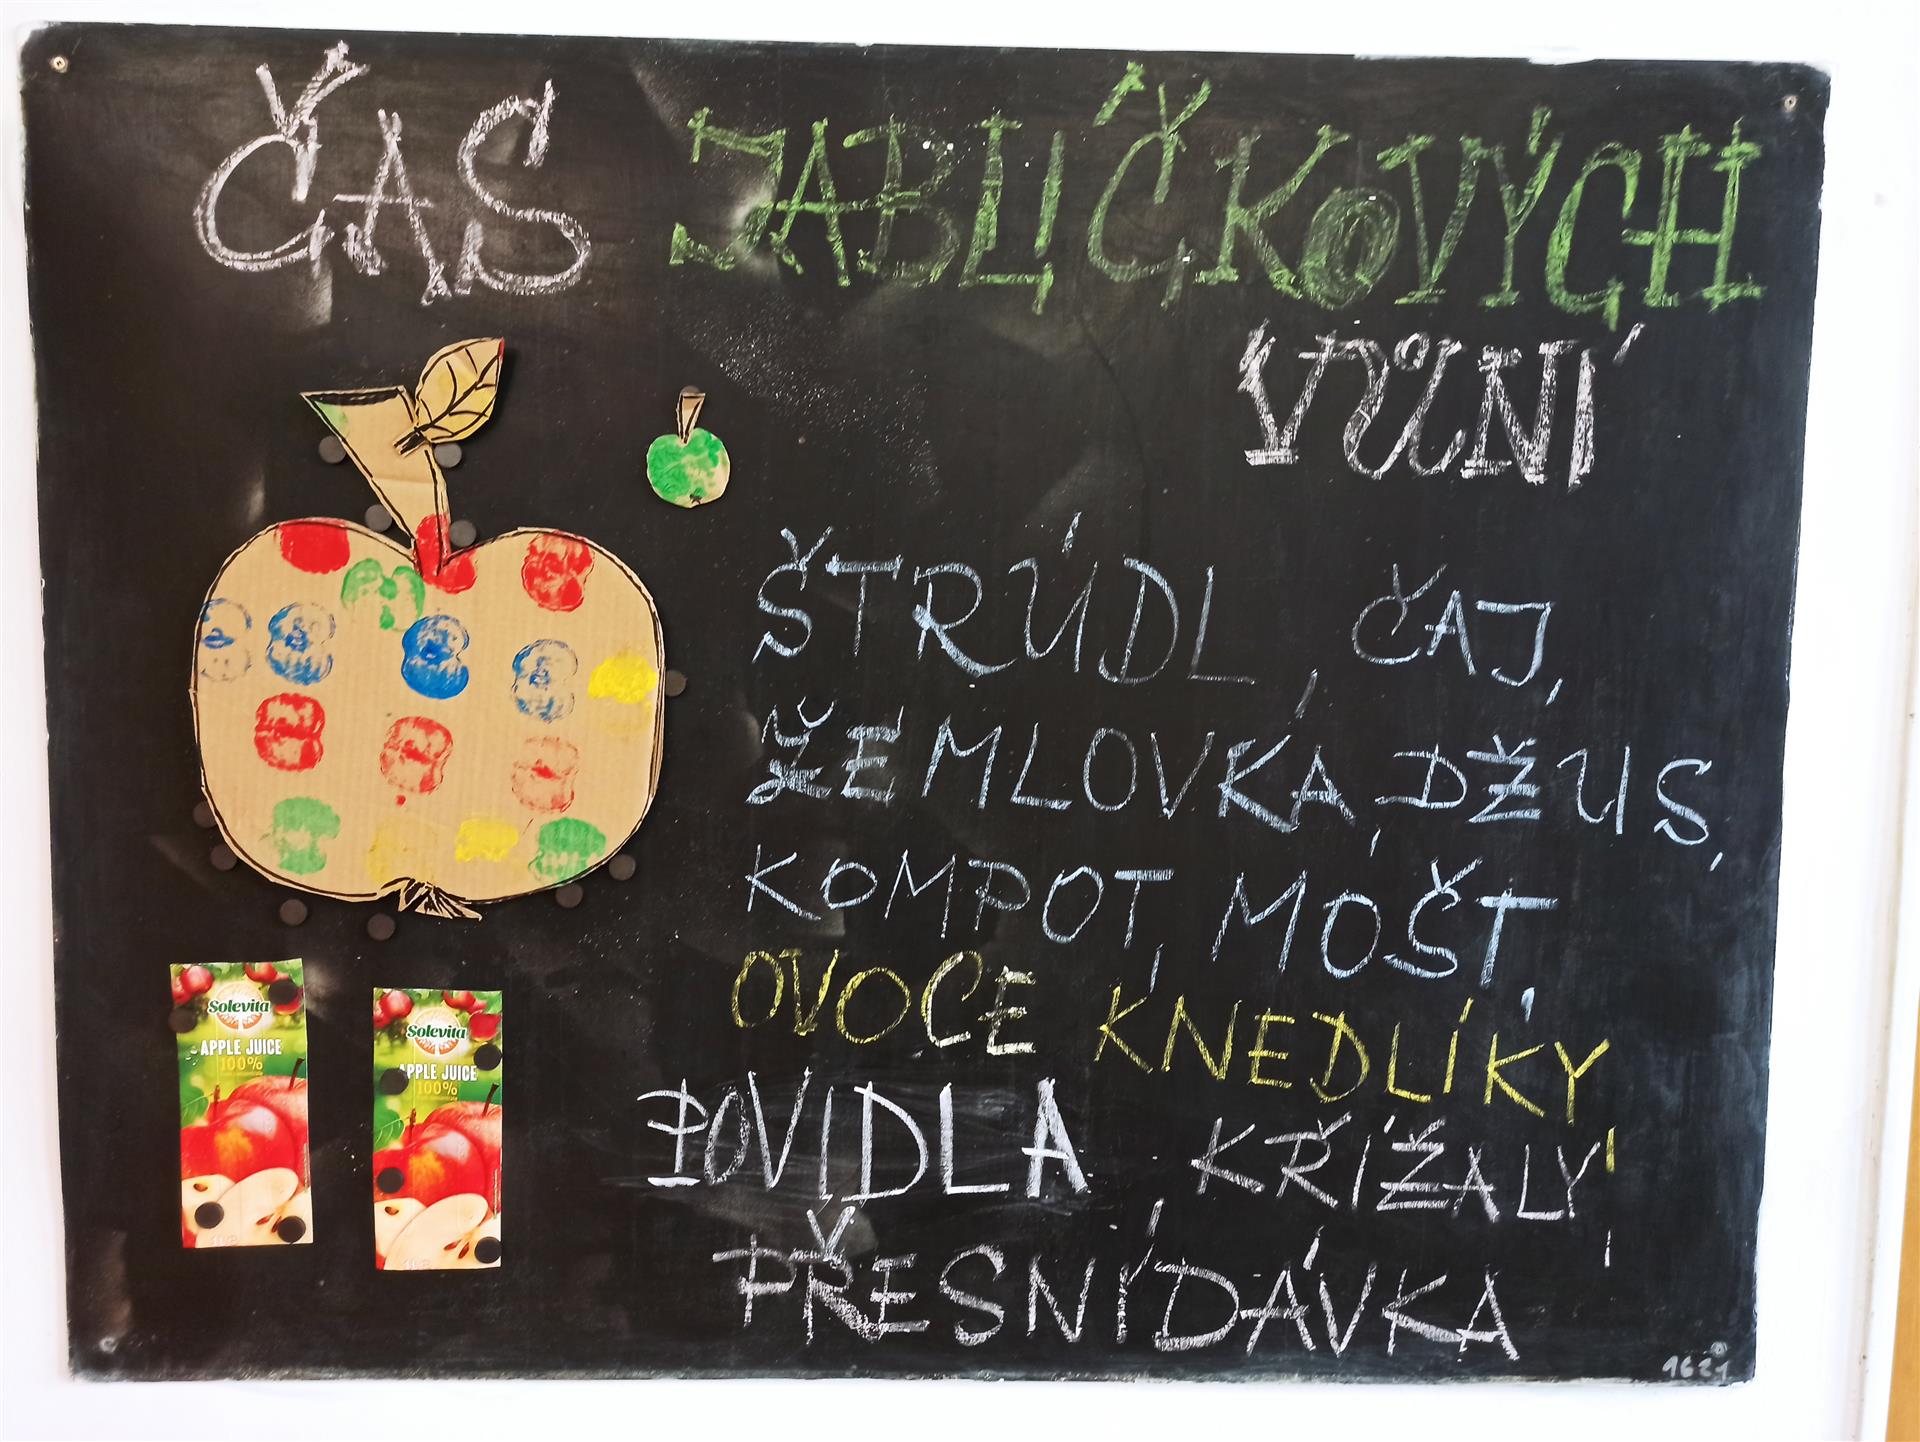 ČAS JABLÍČKOVÝCH
VŮNÍ
ŠTRÚDL, ČAJ,
ŽEMLOVKA, DŽUS,
KOMPOT, MOŠT,
OVOCE KNEDLÍKY,
POVIDLA, KŘÍŽALY,
PŘESNÍDÁVKA
Solevita
APPLE JUICE
100%
Solevita
APPLE JUICE
100%
1621